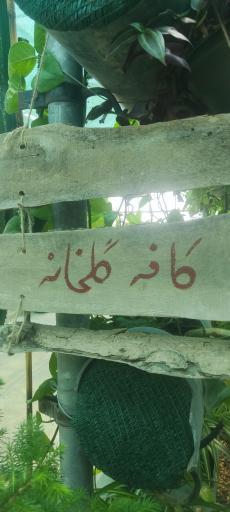 کافه گلخانه